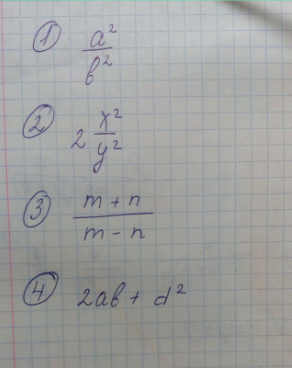 ① a²/b²
② 2 x²/y²
③ m + n / m - n
④ 2ab + d²